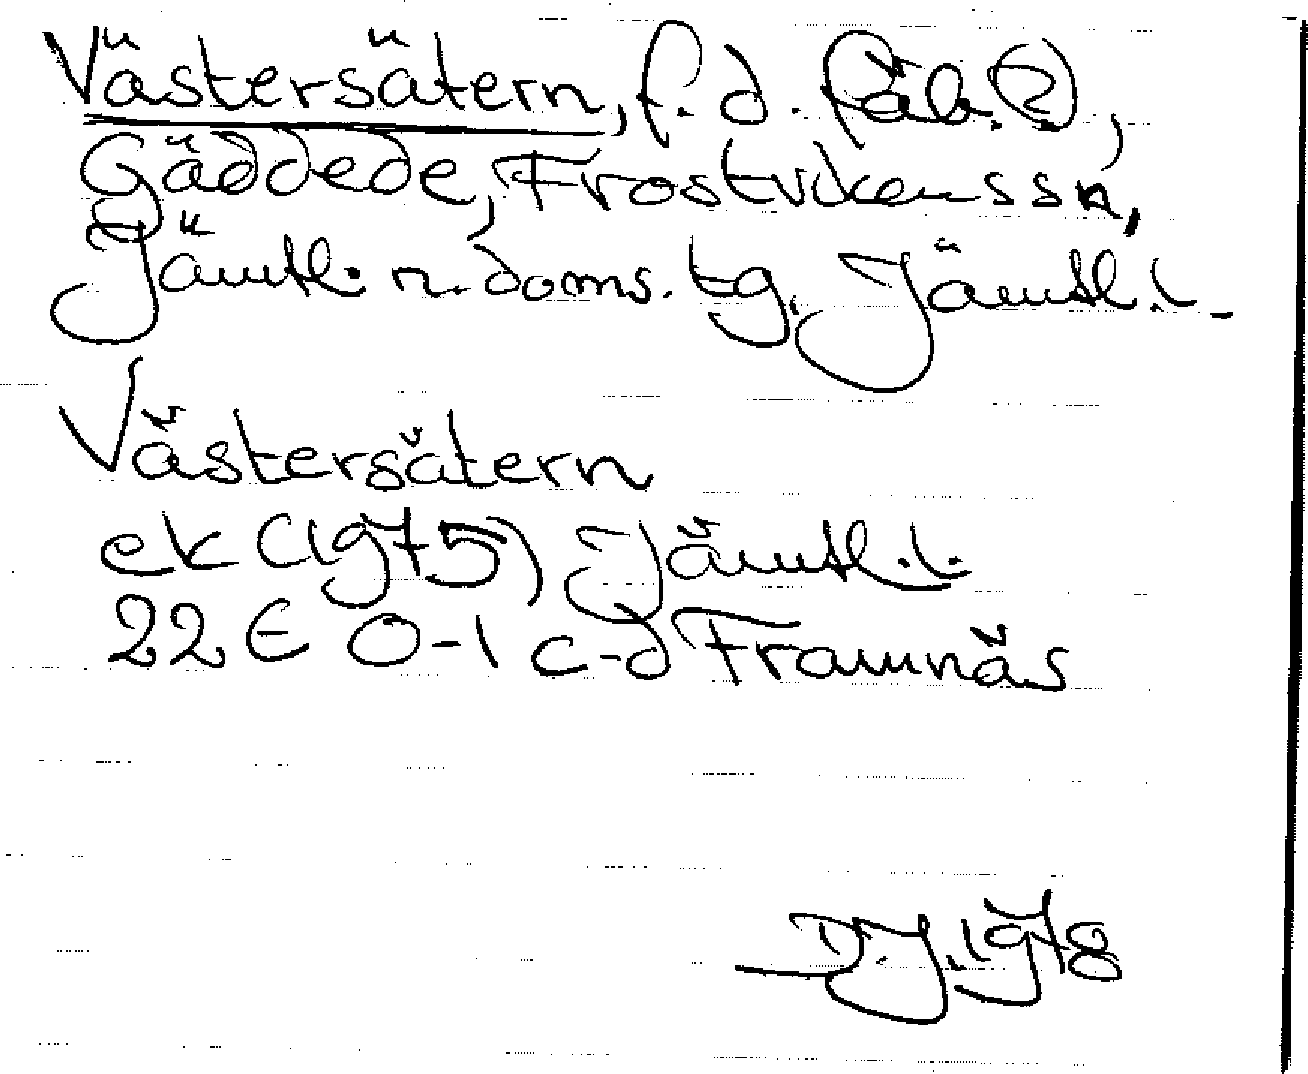 Västersätern, f.d. fäb.(?),
Gäddede, Frostvikens sn,
Jämtl. n. doms. tg. Jämtl. l.
Västersätern
ek (1975) Jämtl. l.
22E 0-1 c-d Framnäs
D.J. 1978